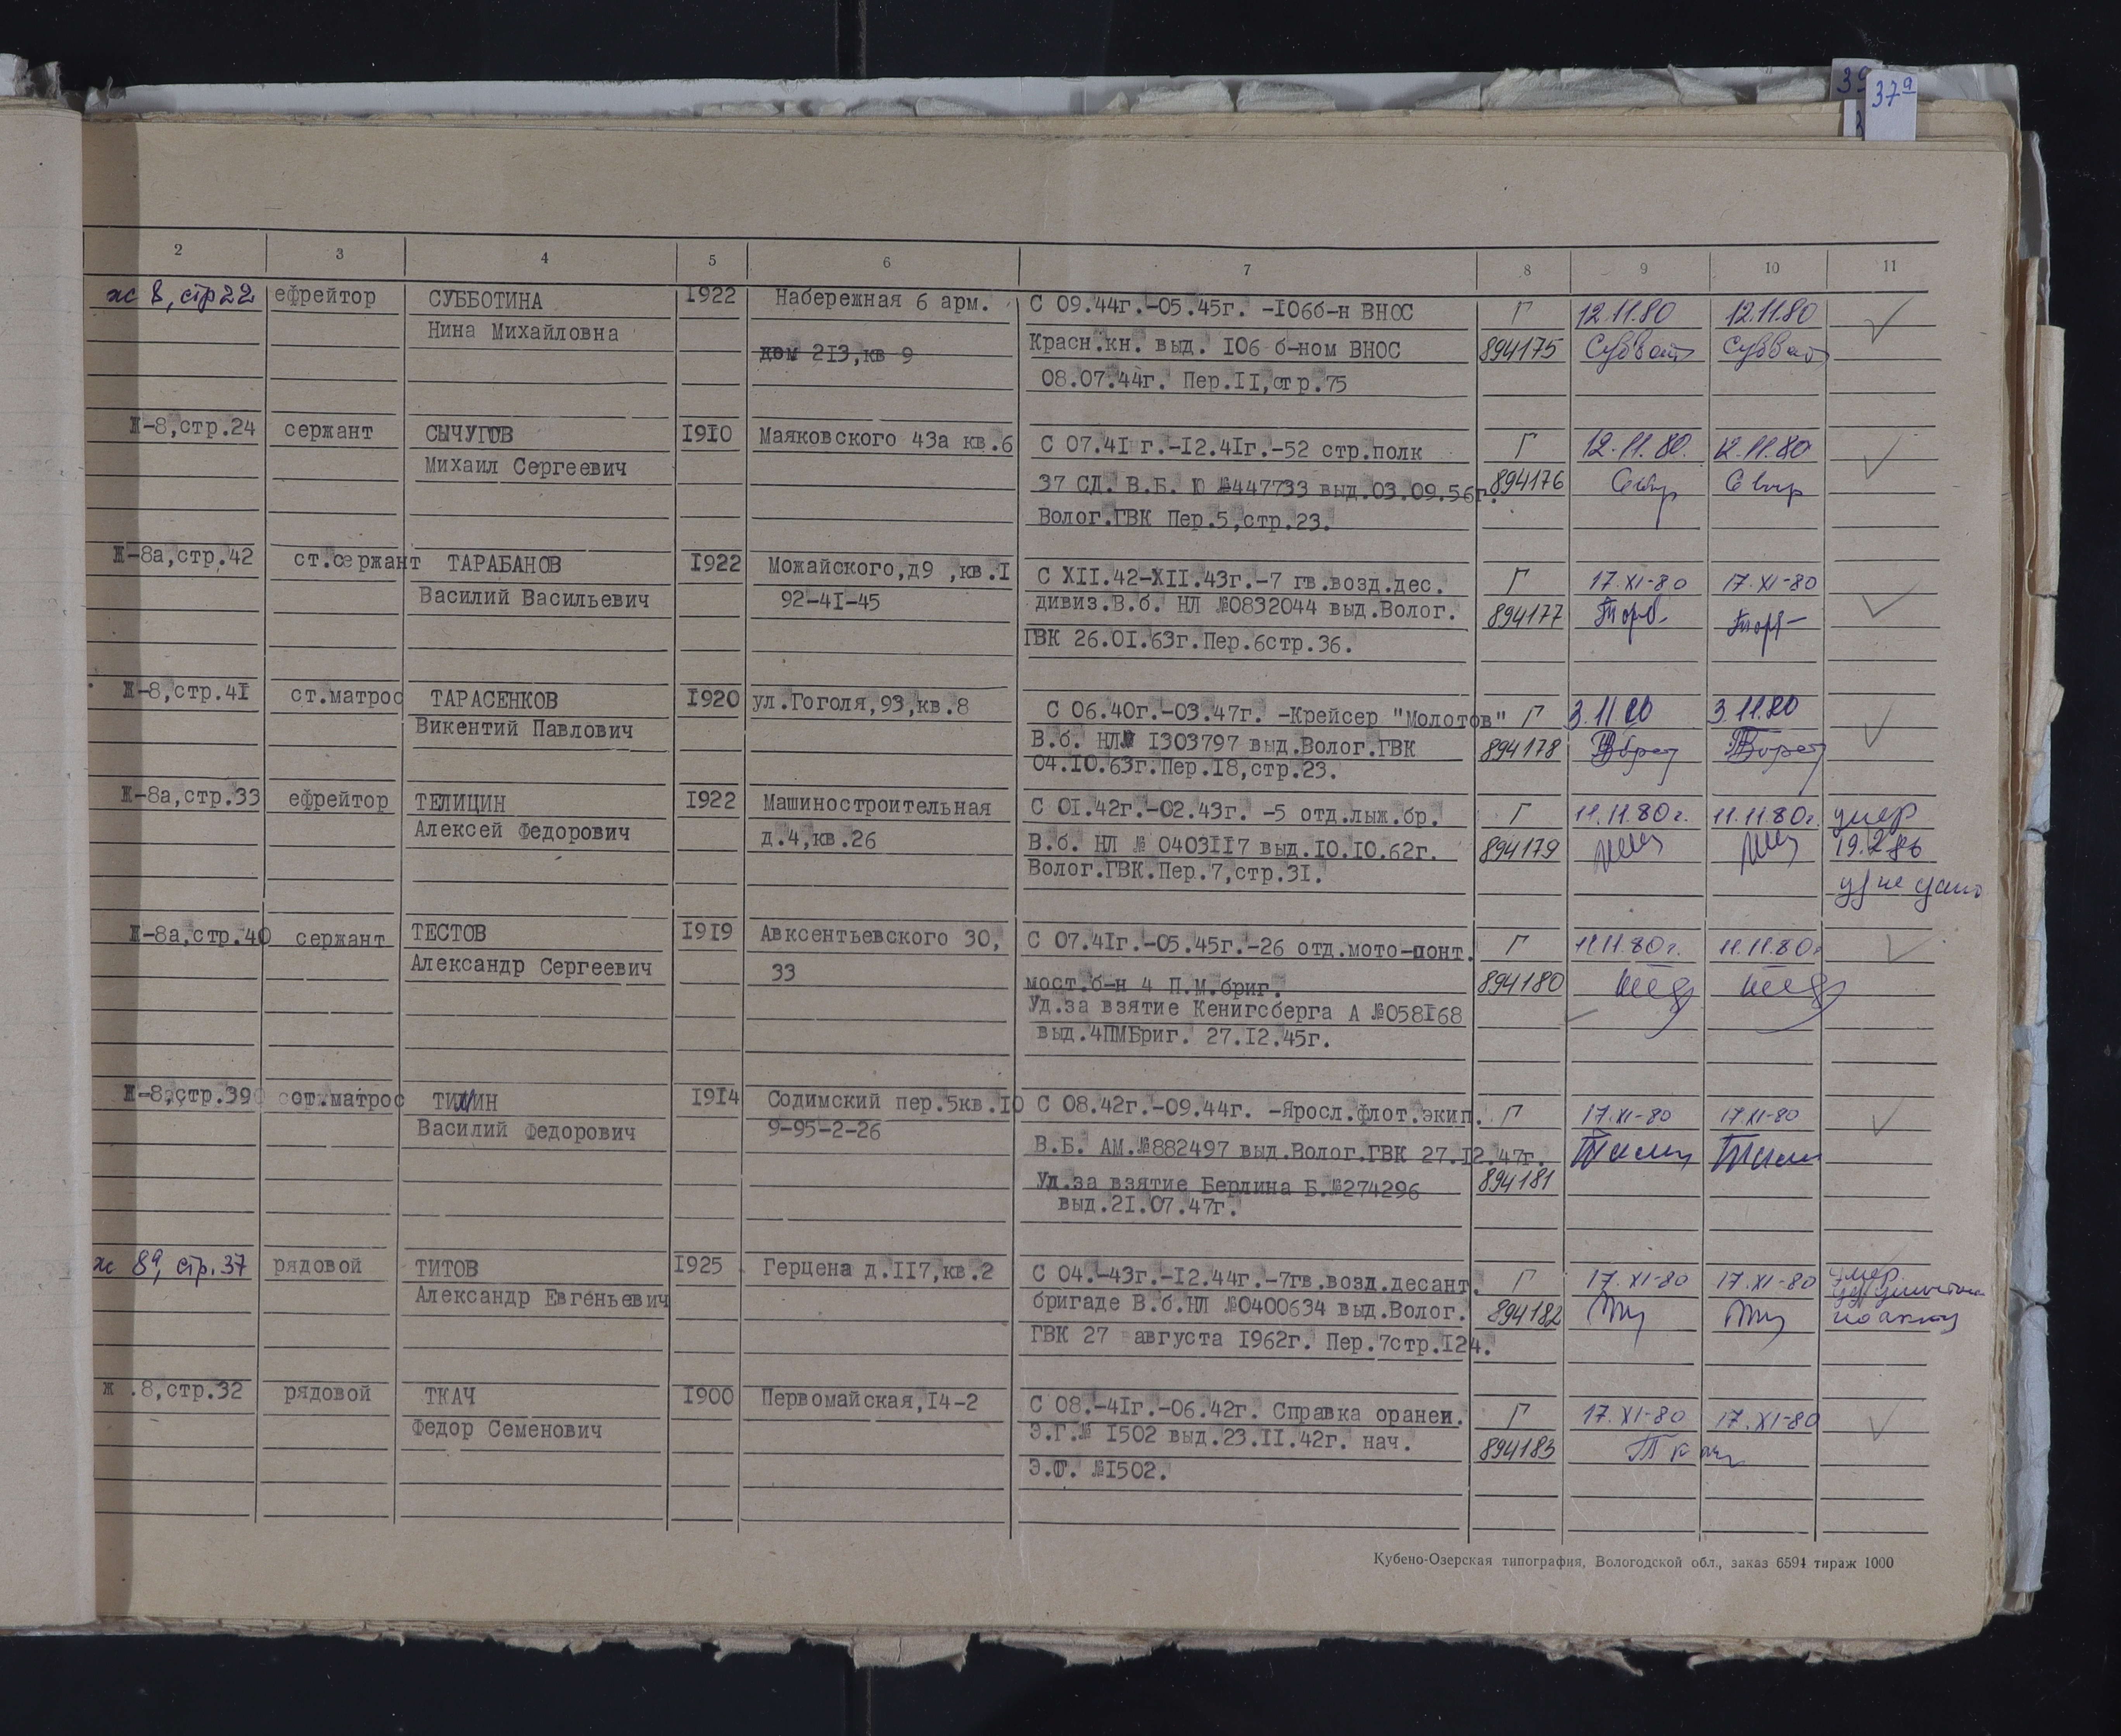 39
37а
2 3 4 5 6 7 8 9 10 11
ж 8, стр 22 ефрейтор СУББОТИНА 1922 Набережная 6 арм. С 09.44г.-05.45г. -106б-н ВНОС Г 12.11.80 12.11.80
Нина Михайловна дом 213,кв 9 Красн.кн. выд. 106 б-ном ВНОС 894175
08.07.44г. Пер.II,стр.75
Ж-8,стр.24 сержант СЫЧУГОВ 1910 Маяковского 43а кв.6 С 07.41 г.-12.41г.-52 стр.полк Г 12.11.80. 12.11.80
Михаил Сергеевич 37 СД. В.Б. Ю №447733 выд.03.09.56г. 894176
Волог.ГВК Пер.5,стр.23.
Ж-8а,стр.42 ст.сержант ТАРАБАНОВ 1922 Можайского,д9 ,кв.1 С XII.42-XII.43г.-7 гв.возд.дес. Г 17.XI-80 17.XI-80
Василий Васильевич 92-41-45 дивиз.В.б. НЛ №0832044 выд.Волог. 894177
ГВК 26.01.63г.Пер.6стр.36.
Ж-8,стр.41 ст.матрос ТАРАСЕНКОВ 1920 ул.Гоголя,93,кв.8 С 06.40г.-03.47г. -Крейсер "Молотов" Г 3.11.80 3.11.80
Викентий Павлович В.б. НЛ№ 1303797 выд.Волог.ГВК 894178
04.10.63г.Пер.18,стр.23.
Ж-8а,стр.33 ефрейтор ТЕЛИЦИН 1922 Машиностроительная С 01.42г.-02.43г. -5 отд.лыж.бр. Г 11.11.80г. 11.11.80г. умер
Алексей Федорович д.4,кв.26 В.б. НЛ № 0403117 выд.10.10.62г. 894179 19.2.86
Волог.ГВК.Пер.7,стр.31. не
Ж-8а,стр.40 сержант ТЕСТОВ 1919 Авксентьевского 30, С 07.41г.-05.45г.-26 отд.мото-понт. Г 11.11.80г. 11.11.80г
Александр Сергеевич 33 мост.б-н 4 П.М.бриг. 894180
Уд.за взятие Кенигсберга А №058168
выд.4ПМБриг. 27.12.45г.
Ж-8,стр.39 ст.матрос ТИЛИН 1914 Содимский пер.5кв.10 С 08.42г.-09.44г. -Яросл.флот.экип. Г 17.XI-80 17.XI-80
Василий Федорович 9-95-2-26 В.Б. АМ.№882497 выд.Волог.ГВК 27.12.47г.
Уд.за взятие Берлина Б.№274296 894181
выд.21.07.47г.
ж 8а, стр.37 рядовой ТИТОВ 1925 Герцена д.117,кв.2 С 04.-43г.-12.44г.-7гв.возд.десант. Г 17.XI-80 17.XI-80 умер
Александр Евгеньевич бригаде В.б.НЛ №0400634 выд.Волог. 894182 по акту
ГВК 27 августа 1962г. Пер.7стр.124.
ж .8,стр.32 рядовой ТКАЧ 1900 Первомайская,14-2 С 08.-41г.-06.42г. Справка оранеи. Г 17.XI-80 17.XI-80
Федор Семенович Э.Г.№ 1502 выд.23.11.42г. нач. 894183 Ткач
Э.Г. №1502.
Кубено-Озерская типография, Вологодской обл., заказ 6594 тираж 1000